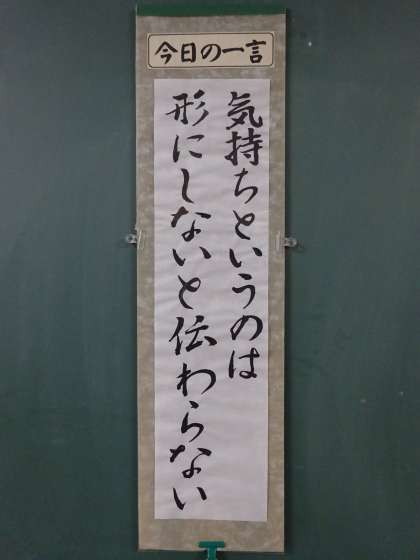 今日の一言
気持ちというのは
形にしないと伝わらない